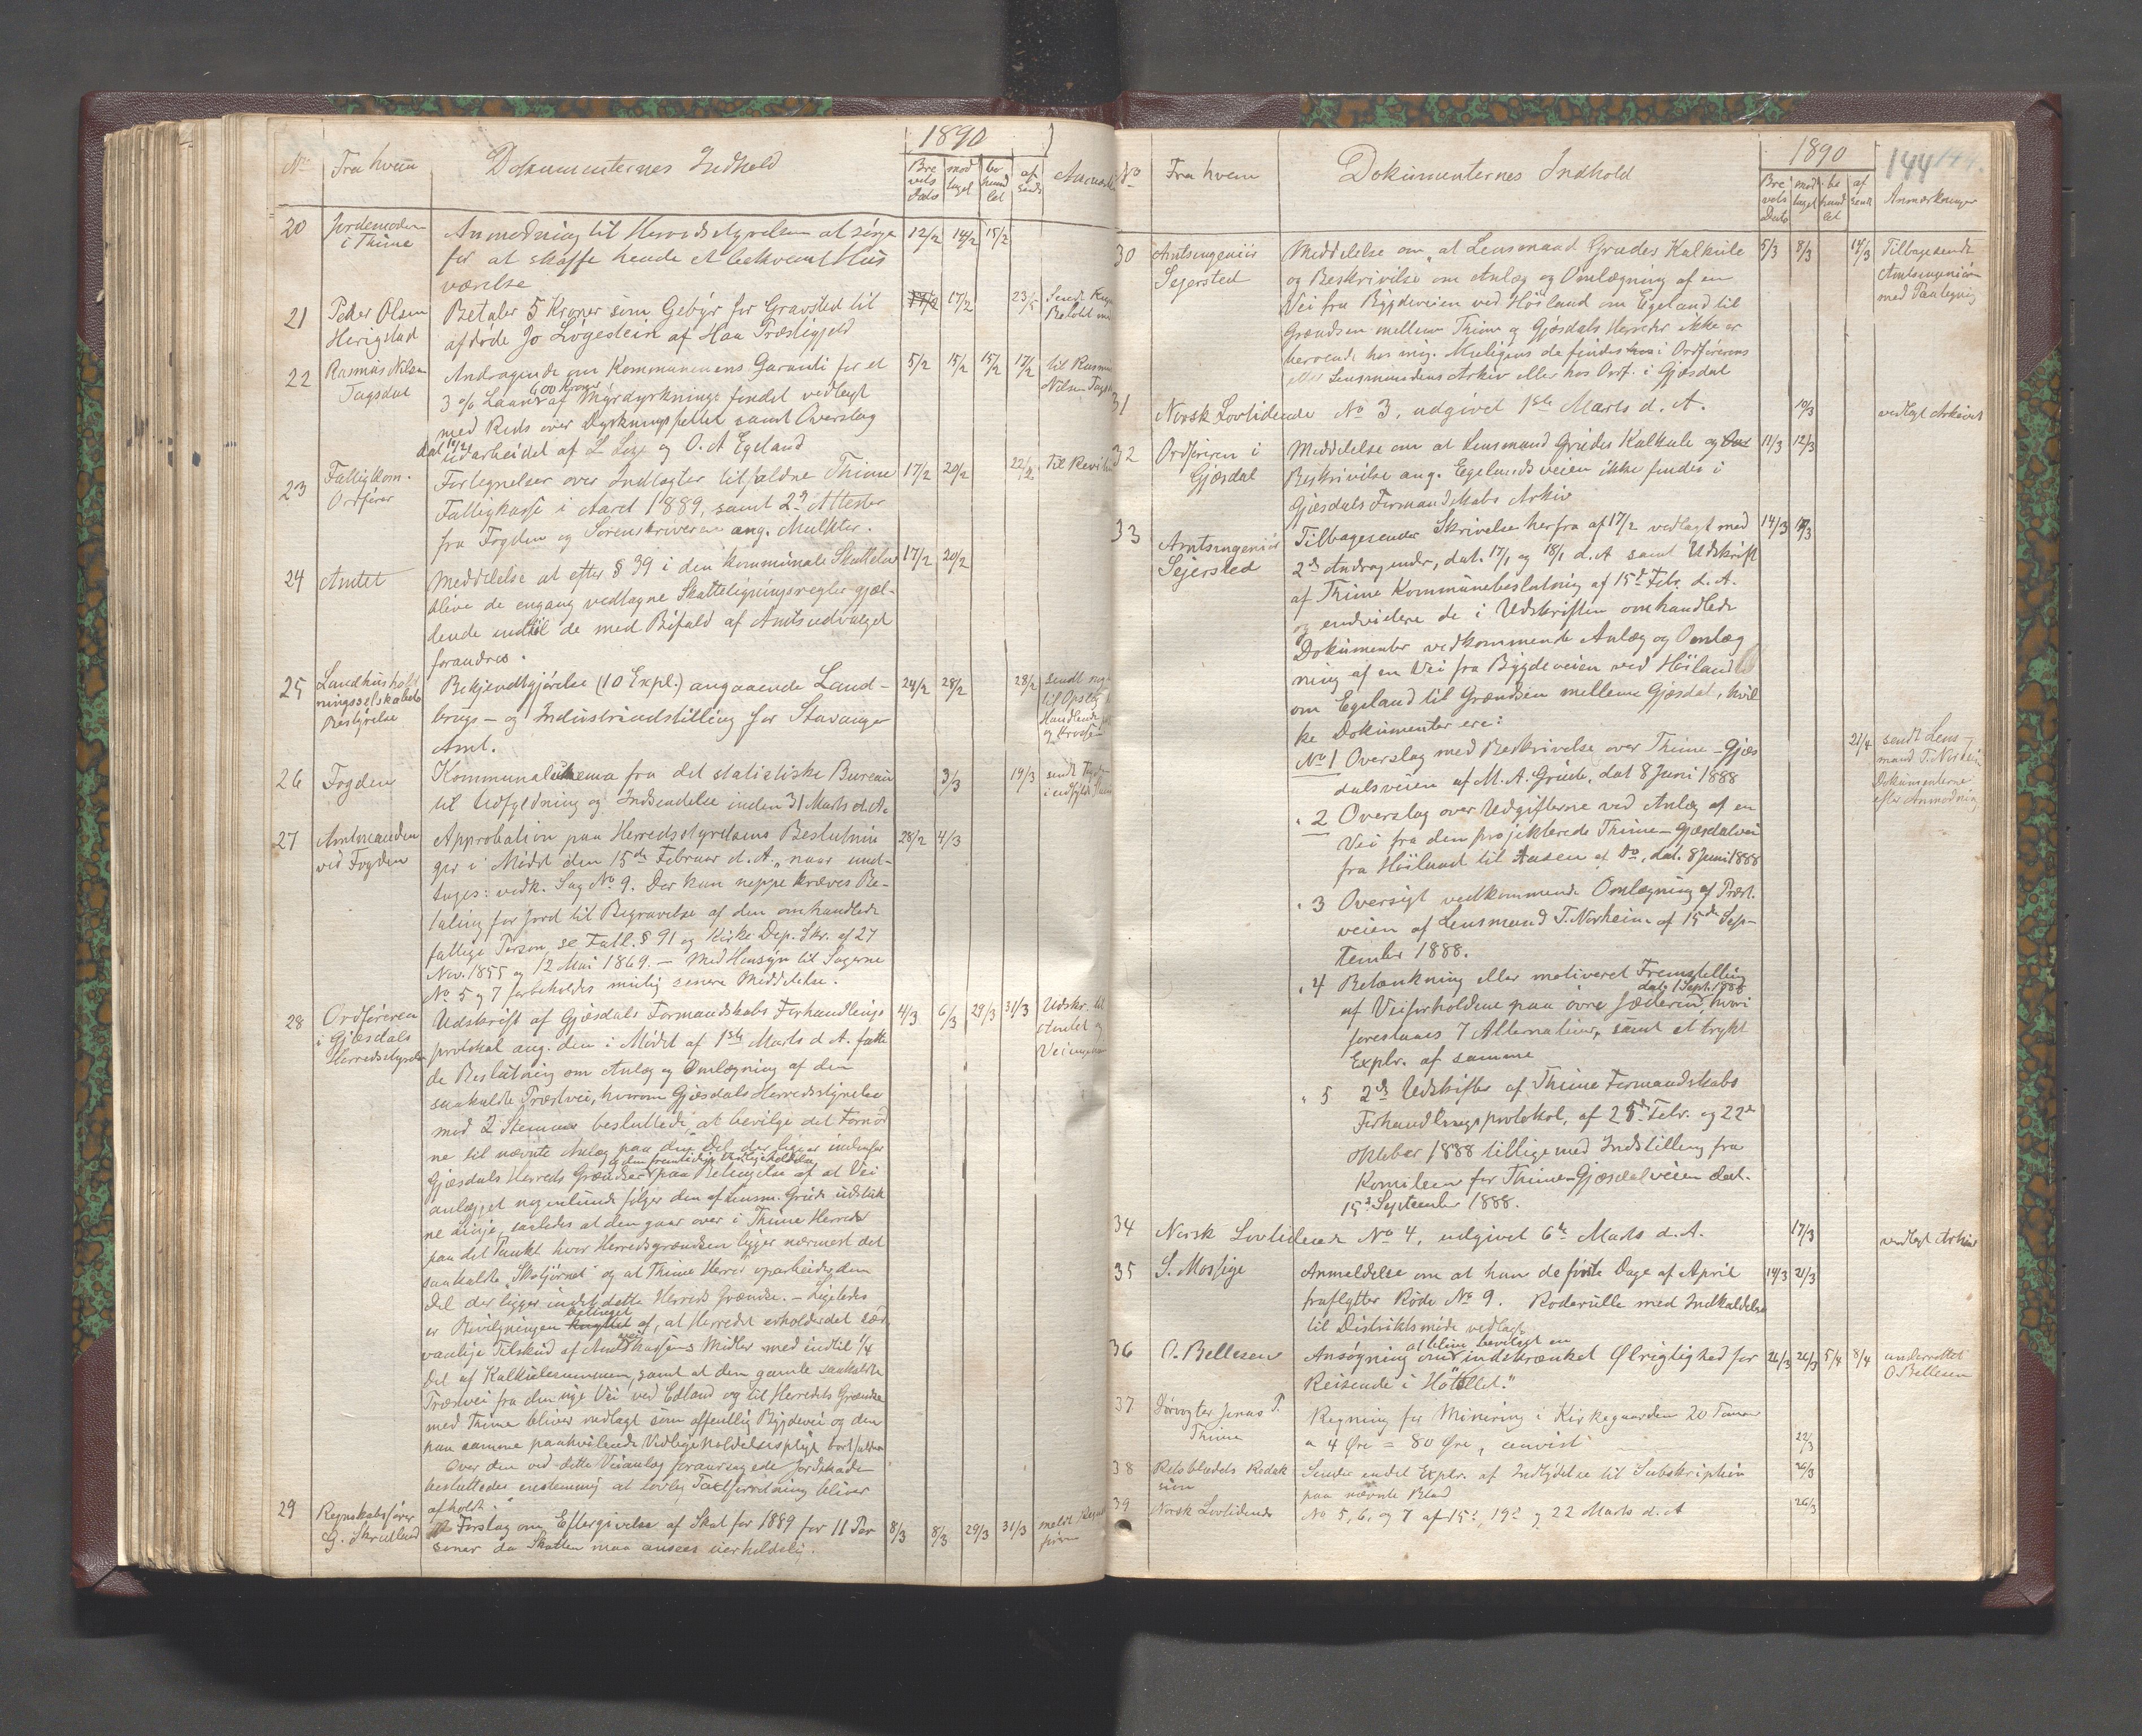 1890
No Fra hvem Dokumenternes Indhold Brevets Dato modtaget behandlet afsendt
20 Jordemoderen i Thime Anmodning til Herredsstyrelsen at sørge 12/2 14/2 15/2
for at skaffe hende et bekvemt Hus
værelse
21 Peder Olsen Herigstad Betaler 5 Kroner som Gebyr for Gravsted til 17/2 23/5 Sendt
afdøde Jo Løgedlein af Haa Præstigjeld
22 Rasmus Nilsen Tagsdal Andragende om Kommunenens Garanti for et 5/2 15/2 15/2 17/2 til Rasmus
3 % Laan 600 Kroner af Myrdyrkningsfondet vedlagt Nilsen
med Rids over Dyrkningsfeltet samt Overslag
udarbeidet af L. og O. A Egeland
23 Fattigkom. Ordfører Fortegnelser over Indtægter tilfaldne Thime 17/2 20/2 22/2 Til
Fattigkasse i Aaret 1889, samt 2de Attester
fra Fogden og Sorenskriveren ang. Mulkter.
24 Amtet Meddelelse at efter § 39 i den kommunale Skattelov 17/2 20/2
blive de engang vedtagne Skatteligningsregler gjæl-
dende indtil de med Bifald af Amtsudvalget
forandres.
25 Landhusholdningsselskabets Bestyrelse Bekjendtgjørelse (10 Expl.) angaaende Land- 24/2 28/2 28/2 sendt
brugs- og Industriudstilling for Stavanger til Opslag
Amt.
26 Fogden Kommunalskema fra det statistiske Bureau 3/3 19/3 sendt
til Udfyldning og Indsendelse inden 31 Marts d. A.
27 Amtmanden ved Fogden Approbation paa Herredsstyrelsens Beslutnin 28/2 4/3
ger i Mødet den 15de Februar d. A., naar und-
tages: vedk. Sag No 9. Der kan neppe kræves Be-
taling for Jord til Begravelse af den omhandlede
fattige Person, se Fattl. § 91 og Kirke Dep. Skr. af 27
Nov. 1855 og 12 Mai 1869. – Med Hensyn til Sagerne
No 5 og 7 forbeholdes mulig senere Meddelelse.
28 Ordføreren i Gjæsdals Herredsstyrelse Udskrift af Gjæsdals Formandskabs Forhandlings 4/3 6/3 29/3 31/3 Udskr. til
protokol ang. den i Mødet af 1ste Marts d. A. fatte Amtet og
de Beslutning om Anlæg og Omlægning af den
saakaldte Præstvei, hvorom Gjæsdals Herredsstyrelse
med 2 Stemmer besluttede, at bevilge det Fornød
ne til nævnte Anlæg paa den Del der ligger indenfor
Gjæsdals Herreds Grændser paa Betingelse af at Vei
anlægget nogenlunde følger den af Lensm. Grude udstuk
ne Linje, saaledes at den gaar over i Thime Herred
paa det Punkt hvor Herredsgrændsen ligger nærmest det
saakaldte „Skotjørnet" og at Thime Herred oparbeider den
Del der ligger inden dette Herreds Grændse. – Ligeledes
er Bevilgningen betinget af, at Herredet erholder det sæd
vanlige Tilskud af Amtsveikassens Midler med indtil 1/4
Del af Kalkulesummen, samt at den gamle saakaldte
Præstvei fra den nye Vei ved Edland og til Herredets Grændse
med Thime bliver nedlagt som offentlig Bygdevei og den
paa samme paahvilende Vedligeholdelsespligt bortfalden
Over den ved dette Veianlæg foraarsagede Jordskade
besluttedes enstemmig at lovlig Taxtforretning bliver
afholdt."
29 Regnskabsfører G. Skrudland Forslag om Eftergivelse af Skat for 1889 for 11 Per 8/3 8/3 29/3 31/3 meldt
soner da Skatten maa ansees uerholdelig.
1890 144
No Fra hvem Dokumenternes Indhold Brevets Dato modtaget behandlet afsendt Anmærkninger
30 Amtsingeniør Sejersted Meddelelse om „at Lensmand Grudes Kalkule 5/3 8/3 14/3 Tilbagesendt
og Beskrivelse om Anlæg og Omlægning af en Amtsingeniøren
Vei fra Bygdeveien ved Høiland om Egeland til med Paategnig
Grændsen mellem Thime og Gjæsdals Herreder ikke er
beroende hos mig. Muligens de findes i Ordførerens
eller Lensmandens Arkiv eller hos Ordf. i Gjæsdal
31 Norsk Lovtidende No 3, udgivet 1ste Marts d. A. 10/3 vedlagt Arkivet
32 Ordføreren i Gjæsdal Meddelelse om at Lensmand Grudes Kalkule og 11/3 12/3
Beskrivelse ang. Egelandsveien ikke findes i
Gjæsdals Formandskabs Arkiv
33 Amtsingeniør Sejersted Tilbagesender Skrivelse herfra af 17/2 vedlagt med 14/3
2de Andragender, dat. 17/1 og 18/1 d. A samt Udskrift
af Thime Kommunebeslutning af 15de Febr. d. A.
og endvidere de i Udskriften omhandlede
Dokumenter vedkommende Anlæg og Omlæg
ning af en Vei fra Bygdeveien ved Høiland
om Egeland til Grændsen mellem Gjæsdal, hvil
ke Dokumenter ere: 21/4 sendt Lens-
No 1 Overslag med Beskrivelse over Thime-Gjæs mand T. Norheim
dalsveien af M. A. Grude, dat 8 Juni 1888 Dokumenterne
" 2 Overslag over Udgifterne ved Anlæg af en efter Anmodning
Vei fra den projekterede Thime-Gjæsdalsvei
fra Høiland til Aasen af Do, dat. 8 Juni 1888
" 3 Oversigt vedkommende Omlægning af Præst.
veien af Lensmand T. Norheim af 15de Sep-
tember 1888.
" 4 Betænkning eller motiveret Fremstilling
dat. 1 Sept. 1888
af Veiforholdene paa øvre Jæderen, hvori
foreslaaes 7 Alternativer, samt et trykt
Explr. af samme
" 5 2de Udskrifter af Thime Formandskabs
Forhandlingsprotokol, af 25de Febr. og 22de
Oktober 1888 tilligemed Indstilling fra
Komiteen for Thime-Gjæsdalveien dat.
15de September 1888.
34 Norsk Lovtidende No 4, udgivet 6te Marts d. A. 17/3 vedlagt Arkivet
35 S. Mossige Anmeldelse om at han de første Dage af April 14/3 21/3
fraflytter Rode No 9. Roderulle med Indkaldelse
til Distriktsmøde vedlagt
at blive bevilget en
36 O. Bellesen Ansøgning om indskrænket Ølrigtighed for 26/3 26/3 5/4 8/4 underrettet
Reisende i Hotellet." O Bellesen
37 Jonas T. Thime Regning for Minering i Kirkegaarden 20 Tommer
a 4 Øre = 80 Øre, anvist 22/3
38 Retsbladets Redaksion Sender endel Explr. af Indbydelse til Subskription 26/3
paa nævnte Blad
39 Norsk Lovtidende No 5, 6, og 7 af 15de, 19de og 22 Marts d. A 26/3